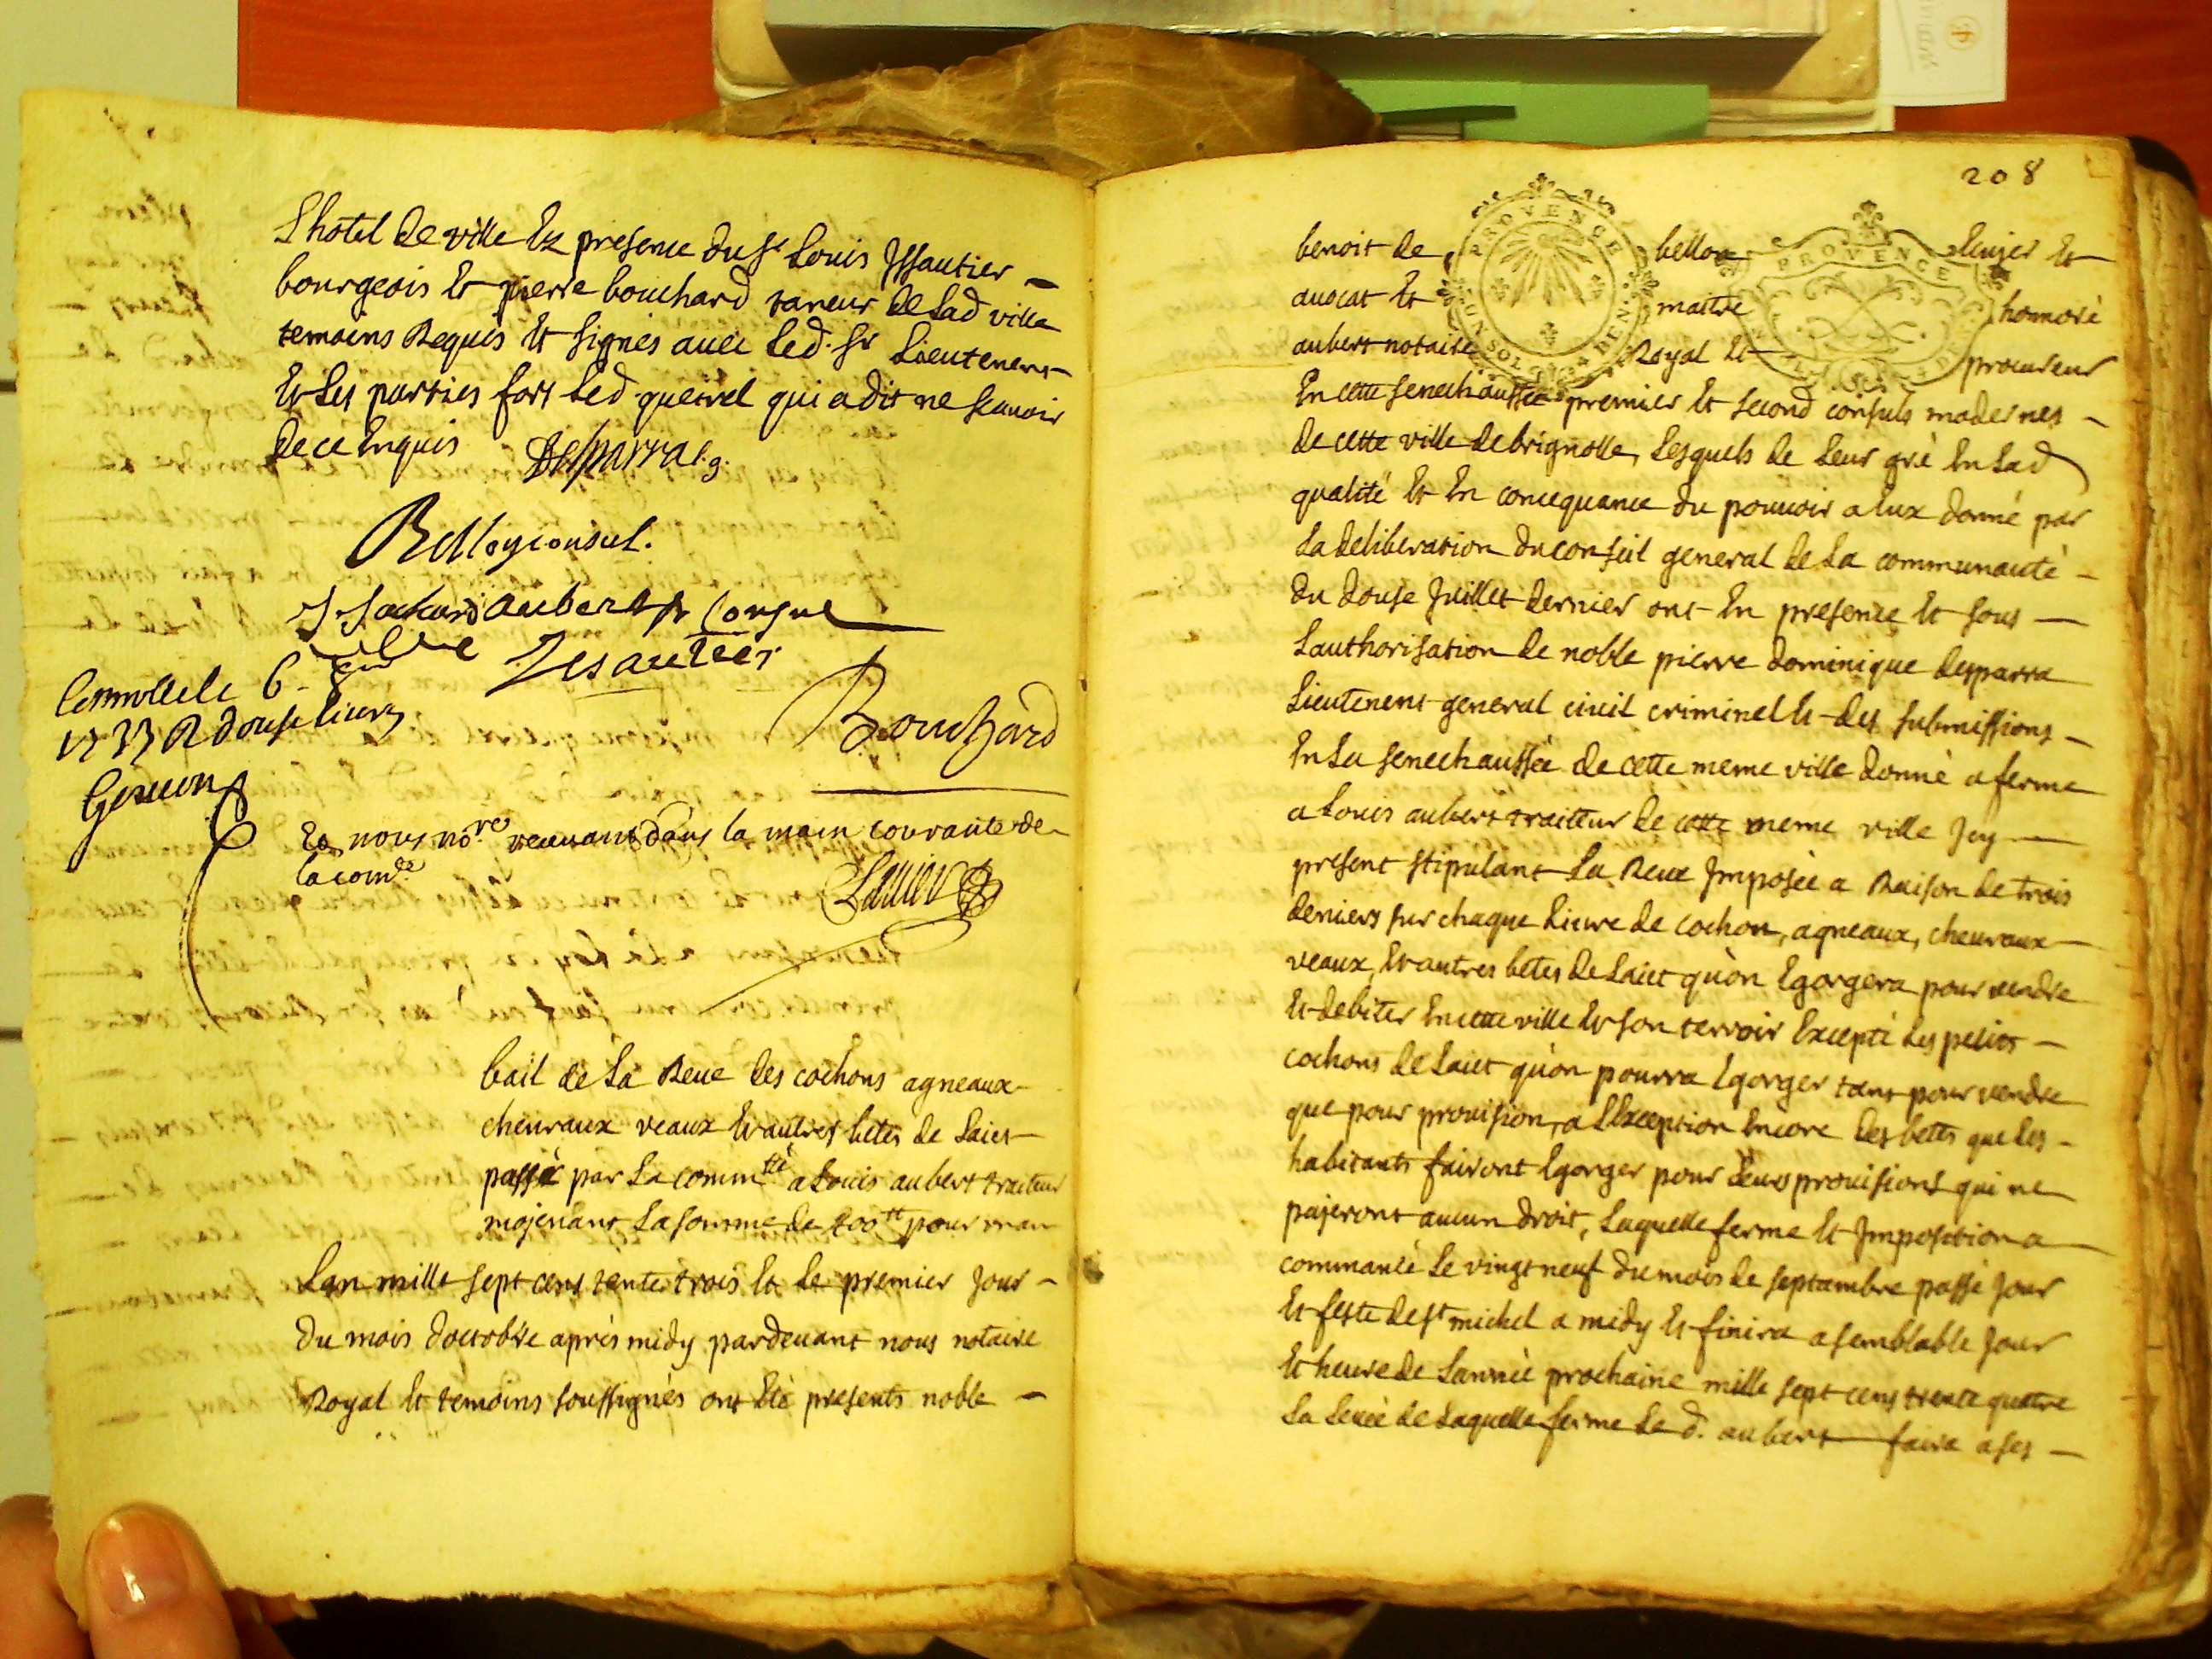 Lhotel de ville Et presence du Sr Louis Jssautier
bourgeois Et pierre bouchard taneur de Lad ville
temoins Requis Et signes avec Led. Sr Lieutenent
Et Les parties fors Led. queirel qui a dit ne scavoir
de ce Enquis Desparra l. g.
Bellon consul.
aubert Consul
Jesautier
Bouchard
Controllé le 6. 8bre
1733 R douse livres
Et nous nore recevant dans la main courante de
la comté
bail de La Reve des cochons agneaux
chevraux veaux Et autres betes de Laict
passé par La commté a Louis aubert traiteur
mojenant La somme de 400 tt pour un an
Lan mille sept cens trente trois Et Le premier Jour
du mois doctobre aprés midy pardevant nous notaire
Royal Et temoins soussignés ont Eté presents noble
208
PROVENCE
PROVENCE
benoit de bellon Ecuyer Et
avocat Et maitre honoré
aubert notaire Royal Et procureur
En cette senechaussée premier Et second consuls modernes
de cette ville de brignolle, Lesquels de Leur gré En Lad
qualité Et En concequance du pouvoir a Eux donné par
La deliberation du conseil general de La communauté
du douse Juillet dernier ont En presence Et sous
Lauthorisation de noble pierre dominique desparra
Lieutenent general civil criminel Et des submissions
En La senechaussée de cette meme ville donné a ferme
a Louis aubert traitteur de cette meme ville Jcy
present stipulant La Reve Jmposée a Raison de trois
deniers sur chaque Livre de cochon, agneaux, chevraux
veaux, Et autres betes de Laict qu'on Egorgera pour vendre
Et debiter En cette ville Et son terroir Excepté Les petits
cochons de Laict qu'on pourra Egorger tant pour vendre
que pour provision, a LException Encore des betes que Les
habitants fairont Egorger pour Leurs provisions qui ne
pajeront aucun droit, Laquelle ferme Et Jmposition a
commancé Le vingt neuf du mois de septambre passé Jour
Et feste de St michel a midy Et finira a semblable Jour
Et heure de Lannée prochaine mille sept cens trente quattre
La Levée de Laquelle ferme Le d. aubert faira a ses